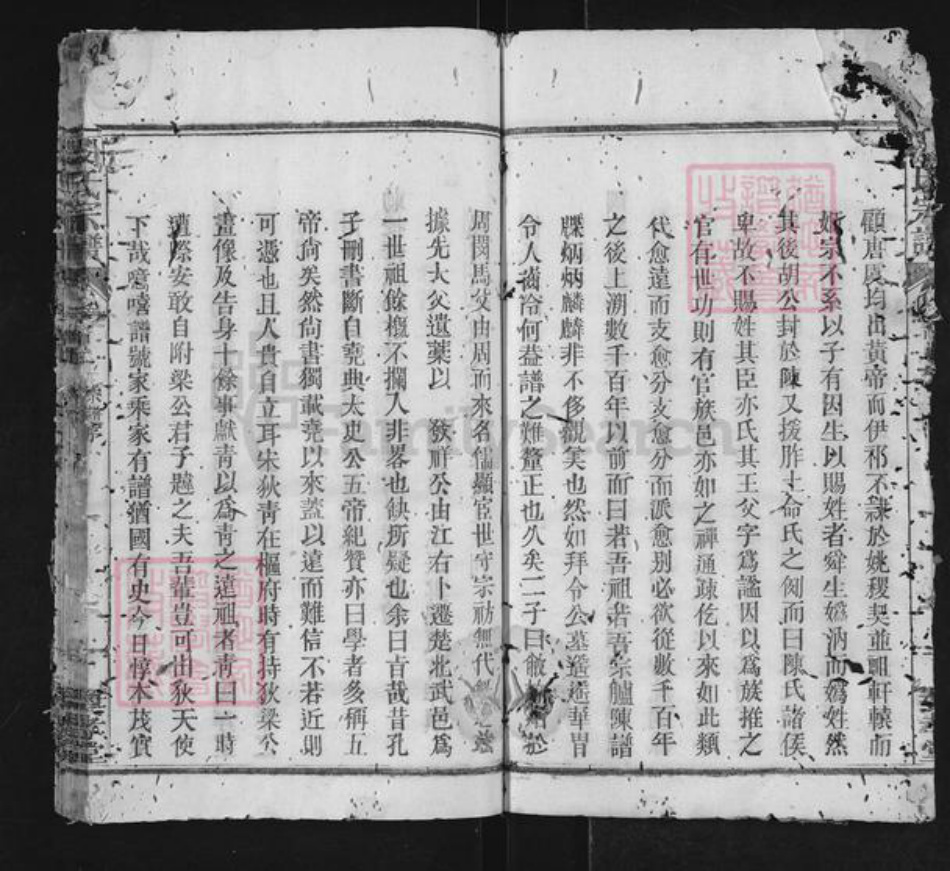 顧唐虞均出黃帝而伊祁不隸於姚稷契並祖軒轅而
姬宗不系以子有因生以賜姓者舜生嬀汭而嬀姓然
其後胡公封於陳又援胙土命氏之例而曰陳氏諸侯
卑故不賜姓其臣亦氏其王父字爲謚因以爲族推之
官有世功則有官族邑亦如之禪通疎仡以來如此類
代愈遠而支愈分支愈分而派愈別必欲從數千百年
之後上溯數千百年以前而曰若吾祖若吾宗臚陳譜
牒炳炳麟麟非不侈觀美也然如拜令公墓遙遙華冑
令人齒冷何益譜之難釐正也久矣二子曰敝
周閔馬父由周而來名儒顯宦世守宗祊無代
據先大父遺藁以 發祥公由江右卜遷楚北武邑爲
一世祖餘槪不攔入非畧也缺所疑也余曰旨哉昔孔
子刪書斷自堯典太史公五帝紀贊亦曰學者多稱五
帝尙矣然尙書獨載堯以來蓋以遠而難信不若近則
可憑也且人貴自立耳宋狄靑在樞府時有持狄梁公
畫像及告身十餘事獻靑以爲靑之遠祖者靑曰一時
遭際安敢自附梁公君子韙之夫吾輩豈可出狄天使
下哉噫嘻譜號家乘家有譜猶國有史今日惇本茂實
氏宗譜
氏宗譜